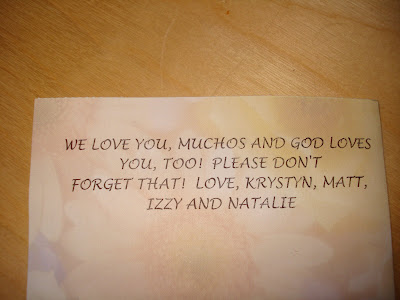 WE LOVE YOU, MUCHOS AND GOD LOVES
YOU, TOO!  PLEASE DON'T
FORGET THAT!  LOVE, KRYSTYN, MATT,
IZZY AND NATALIE